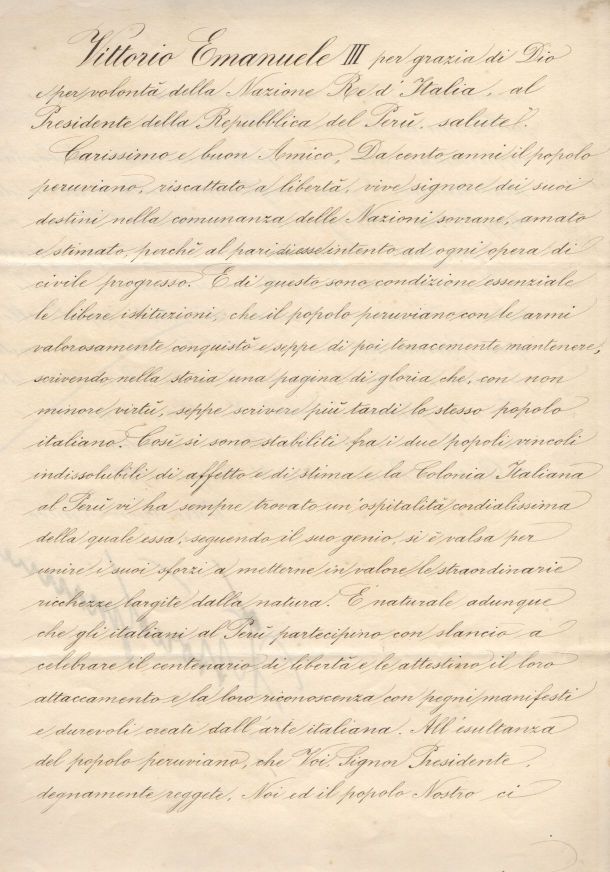 Vittorio Emanuele III per grazia di Dio
e per volontà della Nazione Re d'Italia, al
Presidente della Repubblica del Perù, salute.
Carissimo e buon Amico, Da cento anni il popolo
peruviano, riscattato a libertà, vive signore dei suoi
destini nella comunanza delle Nazioni sovrane, amato
e stimato, perchè al pari di esse intento ad ogni opera di
civile progresso. E di questo sono condizione essenziale
le libere istituzioni, che il popolo peruviano con le armi
valorosamente conquistò e seppe di poi tenacemente mantenere,
scrivendo nella storia una pagina di gloria che, con non
minore virtù, seppe scrivere più tardi lo stesso popolo
italiano. Così si sono stabiliti fra i due popoli vincoli
indissolubili di affetto e di stima e la Colonia Italiana
al Perù vi ha sempre trovato un'ospitalità cordialissima
della quale essa, seguendo il suo genio, si è valsa per
unire i suoi sforzi a metterne in valore le straordinarie
ricchezze largite dalla natura. È naturale adunque
che gli italiani al Perù partecipino con slancio a
celebrare il centenario di libertà e le attestino il loro
attaccamento e la loro riconoscenza con pegni manifesti
e durevoli creati dall'arte italiana. All'esultanza
del popolo peruviano, che Voi, Signor Presidente,
degnamente reggete, Noi ed il popolo Nostro ci